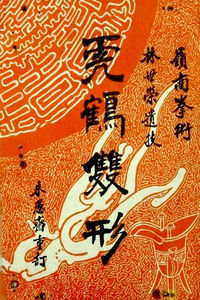 嶺南拳術
林世榮遺技
虎鶴雙形
朱愚齋重訂